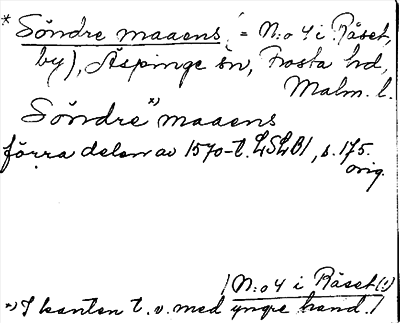 * Söndre maaens (= N:o 4 i Råset,
by), Äspinge sn, Frosta hd,
Malm. l.
Söndre *) maaens
förra delen av 1570-t. LSLB1, s. 175.
orig.
/N:o 4 i Råset(!)
*) I kanten t. v. med yngre hand./